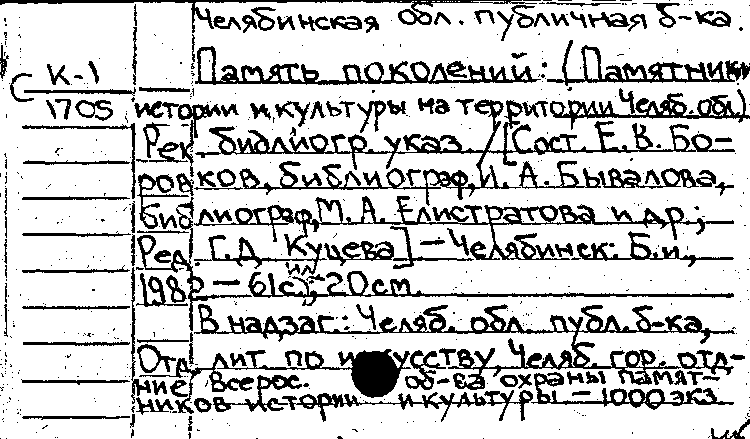 Челябинская обл. публичная б-ка.
К-1
Память поколений: (Памятники
1705
истории и культуры на территории Челяб. обл.)
Рек. библиогр. указ. / [Сост. Е. В. Бо-
ровков, библиограф, И. А. Бывалова,
библиограф, М. А. Елистратова и др.;
Ред. Г. Д. Куцева] – Челябинск: Б. и.,
198 – 61 с., ил; 20 см.
В надзаг.: Челяб. обл. публ. б-ка,
Отд. лит. по искусству, Челяб. гор. отд-
ние Всерос. об-ва охраны памят-
ников истории и культуры – 1000 экз.